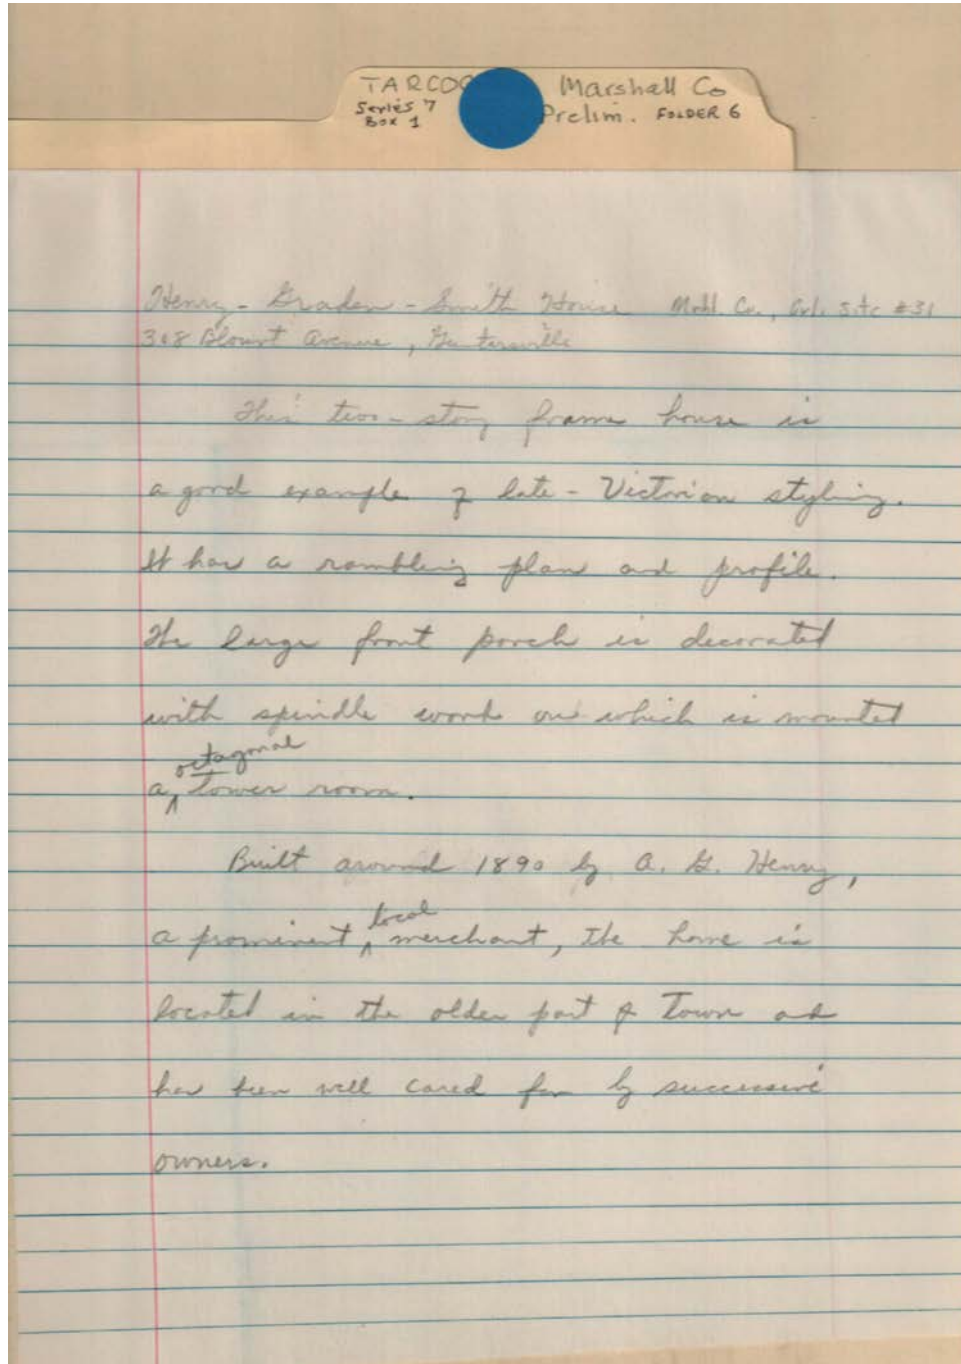 TARCOG Marshall Co
Series 7 Prelim. FOLDER 6
Box 1
Henry - Graden - Smith House Mshl. Co., Site #31
308 Blount Avenue, Guntersville
This two-story frame house is
a good example of late-Victorian styling.
It has a rambling plan and profile.
The large front porch is decorated
with spindle work on which is mounted
octagonal
a tower room.
Built around 1890 by A. G. Henry,
local
a prominent merchant, the home is
located in the older part of town and
has been well cared for by successive
owners.